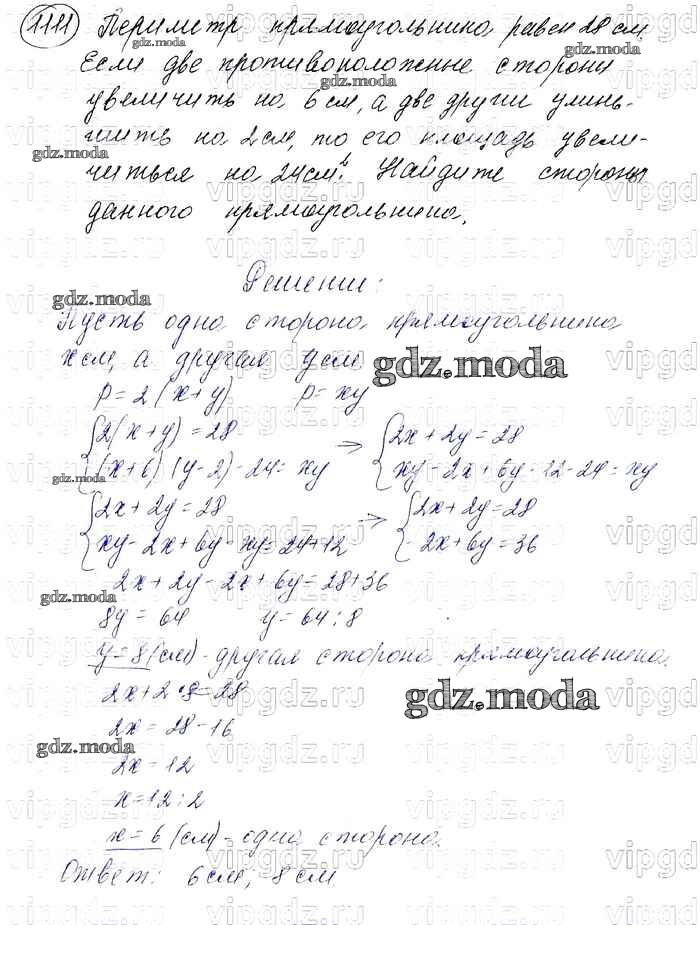 1111 Периметр прямоугольника равен 28 см.
Если две противоположные стороны
увеличить на 6 см, а две други умень-
шить на 2 см, то его площадь увели-
gdz.moda
читься на 24 см². Найдите стороны
данного прямоугольника.
vipgdz.ru
Решении:
gdz.moda
Пусть одна сторона прямоугольника
x см, а другая y см
gdz.moda
P = 2(x+y) P = xy
{2(x+y) = 28 → {2x+2y = 28
(x+6)(y-2) - 24 = xy xy - 2x + 6y - 12 - 24 = xy
gdz.moda
{2x+2y = 28 → {2x+2y = 28
xy - 2x + 6y - xy = 24+12 - 2x+6y = 36
2x+2y - 2x+6y = 28+36
gdz.moda
8y = 64 y = 64 : 8
y = 8 (см) - другая сторона прямоугольника.
2x+2·8 = 28
gdz.moda
2x = 28 - 16
gdz.moda
2x = 12
x = 12 : 2
x = 6 (см) - одна сторона.
Ответ: 6 см; 8 см